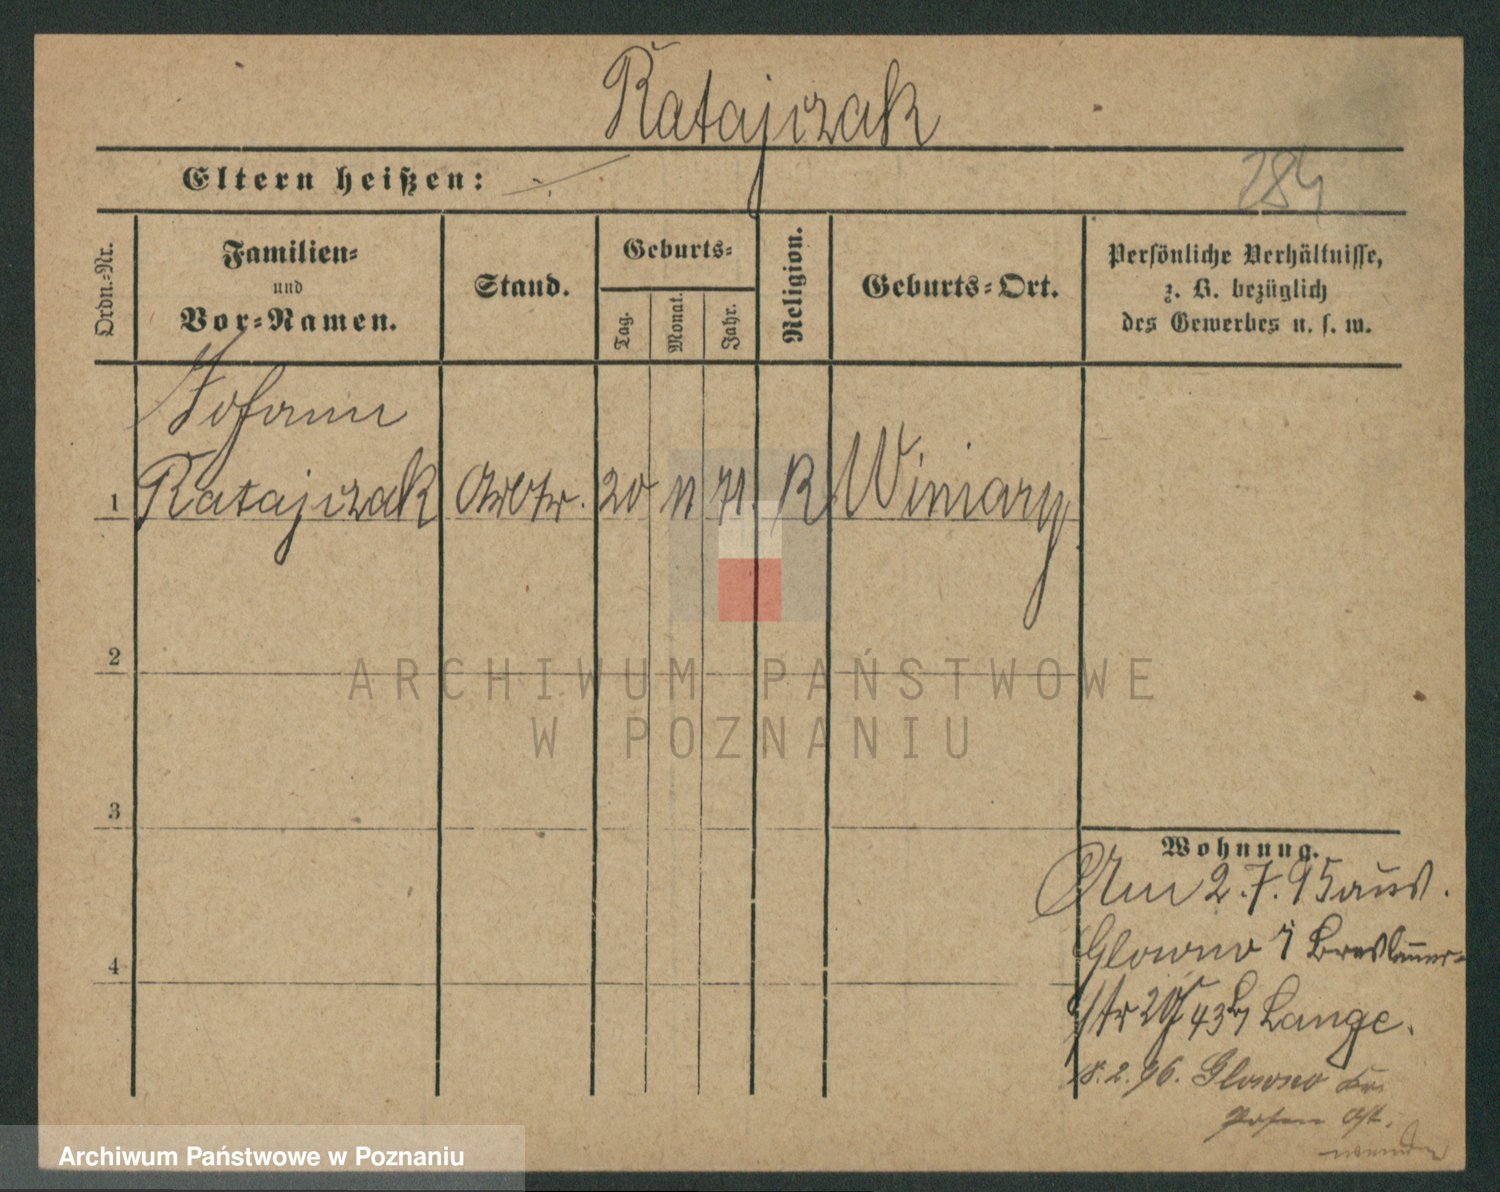 Ratajczak
Eltern heißen:
284
Ordn.-Nr.
Familien-
und
Vor-Namen.
Stand.
Geburts-
Tag.
Monat.
Jahr.
Religion.
Geburts-Ort.
Persönliche Verhältnisse,
z. B. bezüglich
des Gewerbes u. s. w.
Johann
1 Ratajczak Arbtr. 20 11 71. K Winiary
2
ARCHIWUM PAŃSTWOWE
W POZNANIU
3
Wohnung.
Am 2.7.95 aus.
Glowno Breslauer-
str 20 43 Lange.
8.2.96. Glowno Kr.
Posen Ost.
wenden
4
Archiwum Państwowe w Poznaniu